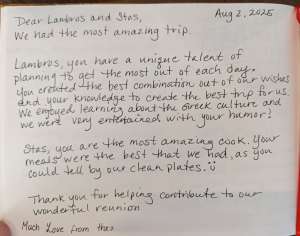 Aug 2, 2025
Dear Lambros and Stas,
We had the most amazing trip.
Lambros, you have a unique talent of
planning to get the most out of each day.
You created the best combination out of our wishes
and your knowledge to create the best trip for us.
We enjoyed learning about the Greek culture and
we were very entertained with your humor!
Stas, you are the most amazing cook. Your
meals were the best that we had, as you
could tell by our clean plates. ü
Thank you for helping contribute to our
wonderful reunion
Much Love from the